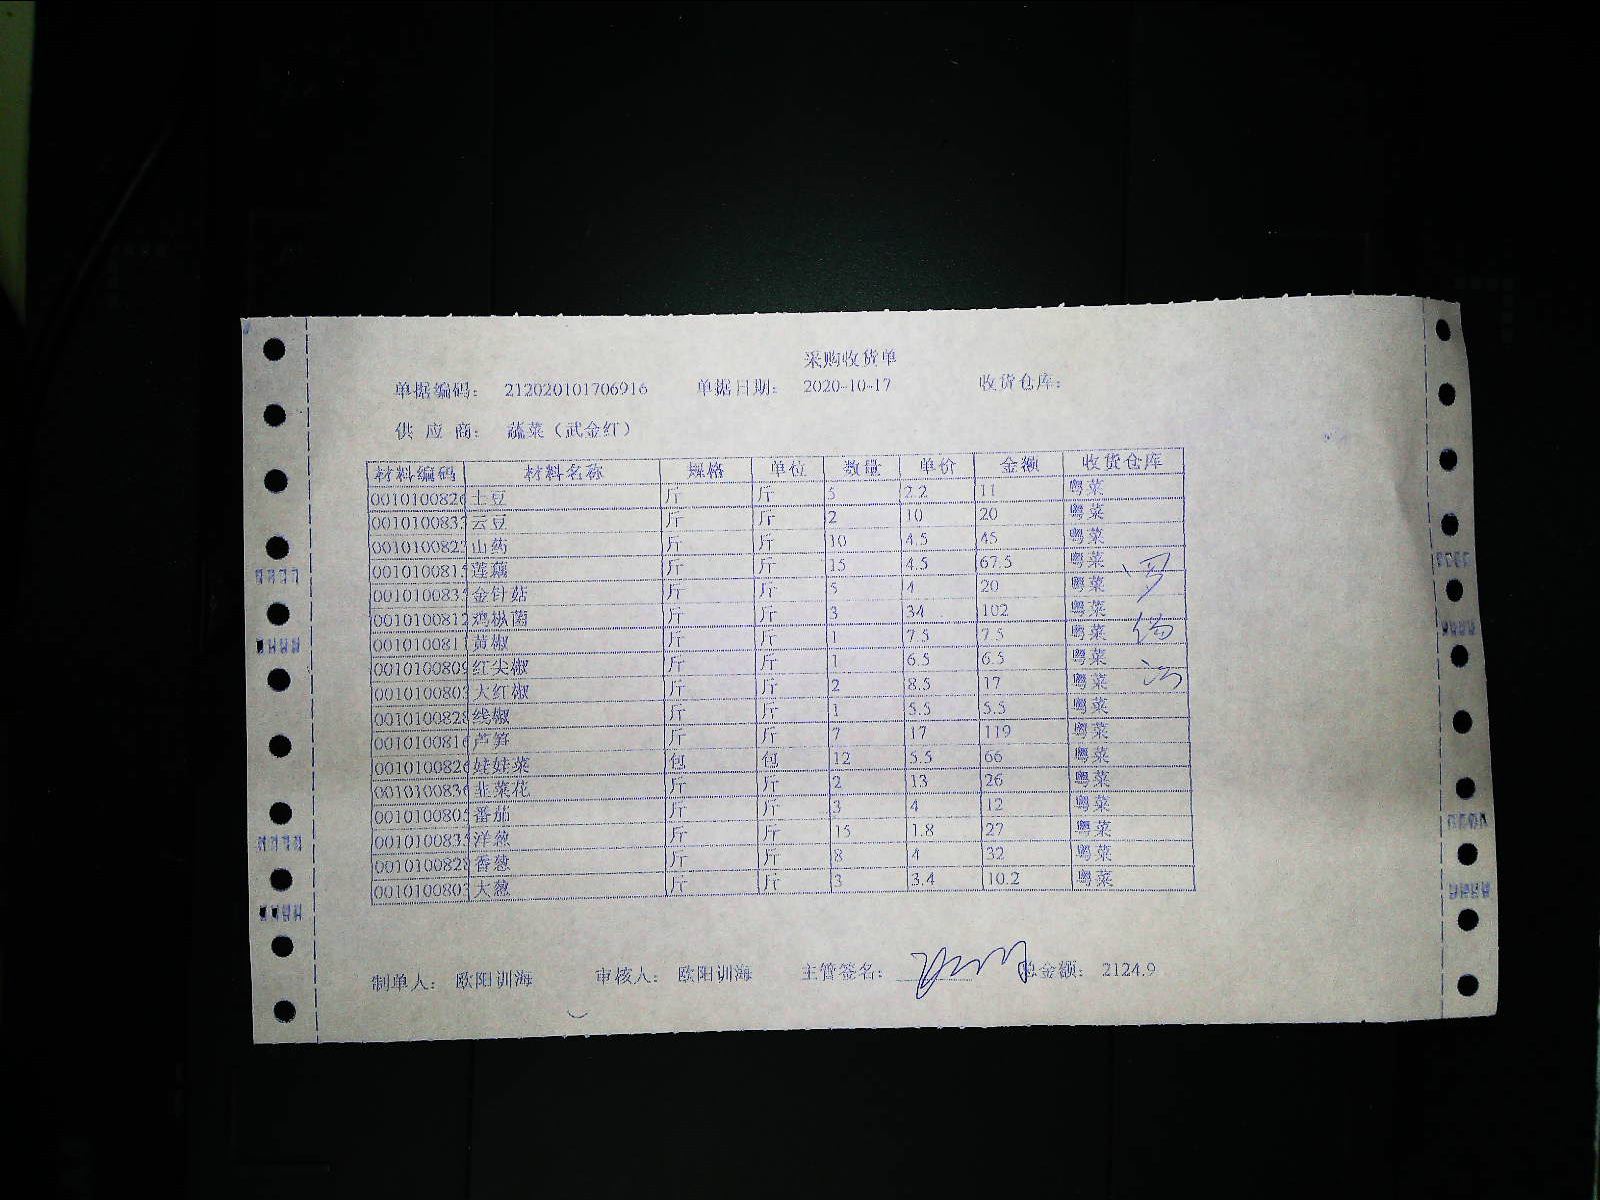 采购收货单
单据编码： 212020101706916 单据日期： 2020-10-17 收货仓库：
供 应 商： 蔬菜（武金红）
材料编码 材料名称 规格 单位 数量 单价 金额 收货仓库
0010100826 土豆 斤 斤 5 2.2 11 粤菜
001010083 云豆 斤 斤 2 10 20 粤菜
001010082 山药 斤 斤 10 4.5 45 粤菜
001010081 莲藕 斤 斤 15 4.5 67.5 粤菜
001010083 金针菇 斤 斤 5 4 20 粤菜
0010100812 鸡枞菌 斤 斤 3 34 102 粤菜
001010081 黄椒 斤 斤 1 7.5 7.5 粤菜
0010100809 红尖椒 斤 斤 1 6.5 6.5 粤菜
001010080 大红椒 斤 斤 2 8.5 17 粤菜
0010100828 线椒 斤 斤 1 5.5 5.5 粤菜
0010100816 芦笋 斤 斤 7 17 119 粤菜
0010100826 娃娃菜 包 包 12 5.5 66 粤菜
0010100836 韭菜花 斤 斤 2 13 26 粤菜
001010080 番茄 斤 斤 3 4 12 粤菜
001010083 洋葱 斤 斤 15 1.8 27 粤菜
001010082 香葱 斤 斤 8 4 32 粤菜
001010080 大葱 斤 斤 3 3.4 10.2 粤菜
制单人： 欧阳训海 审核人： 欧阳训海 主管签名： 总金额： 2124.9